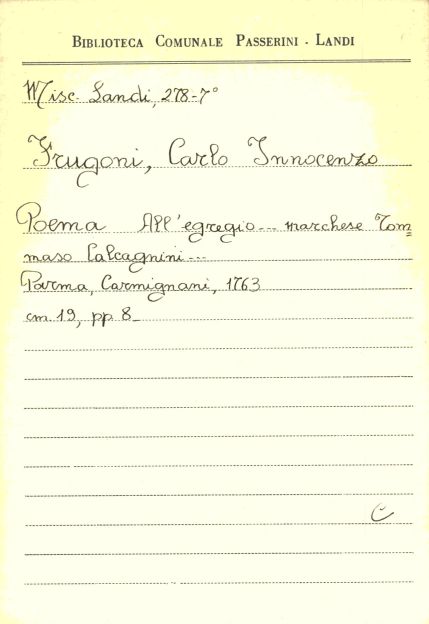 BIBLIOTECA COMUNALE PASSERINI - LANDI
Misc. Landi, 278-7°
Frugoni, Carlo Innocenzo
Poema All'egregio... marchese Tom=
maso Calcagnini...
Parma, Carmignani, 1763
cm 19, pp. 8
C